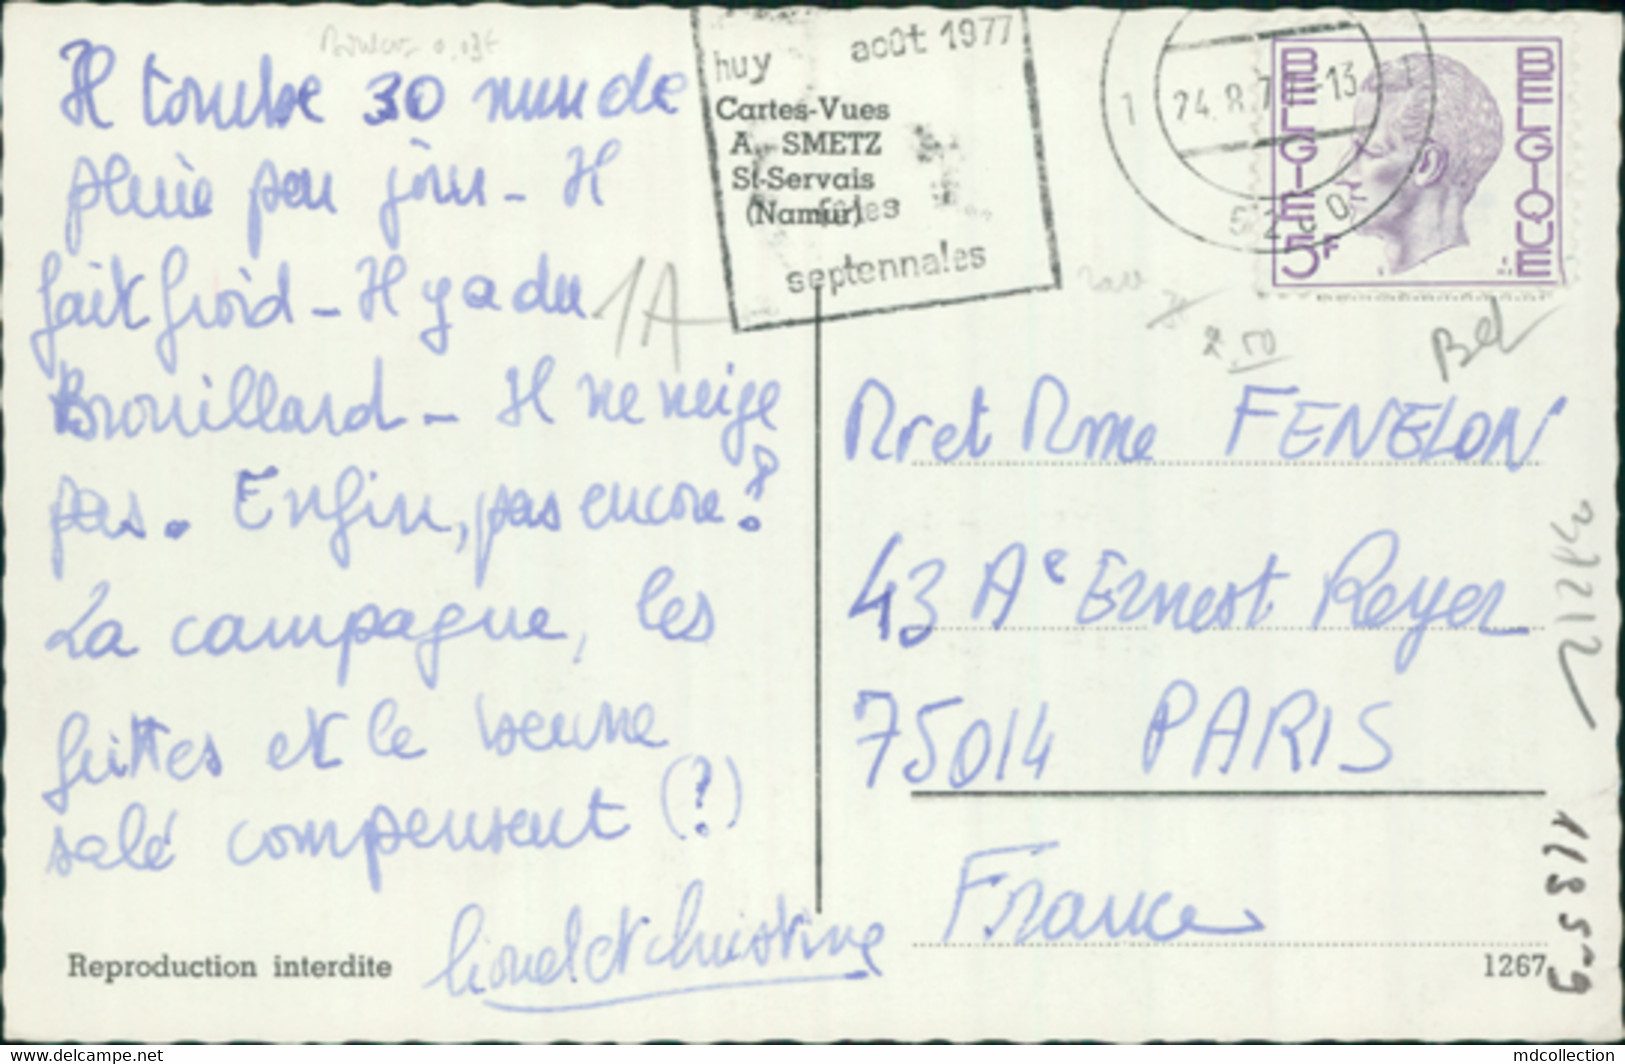 Il tombe 30 mm de
pluie par jour - Il
fait froid - Il y a du
Brouillard - Il ne neige
pas. Enfin, pas encore!
La campagne, les
frittes et le beurre
salé compensent (?)
Lionel et Christine
Reproduction interdite
huy août 1977
Cartes-Vues
A. SMETZ
St-Servais
(Namur)
septennales
1A
1 24.8.7 -13 1
BELGIE 5F BELGIQUE
2.50
Bel
Mr et Mme FENELON
43 Ae Ernest Reyer
75014 PARIS
France
1267
www.delcampe.net
mdcollection